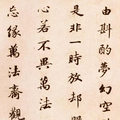 由斟酌夢幻空
是非一時放却眼
心若不異萬法
忘緣萬法齊觀